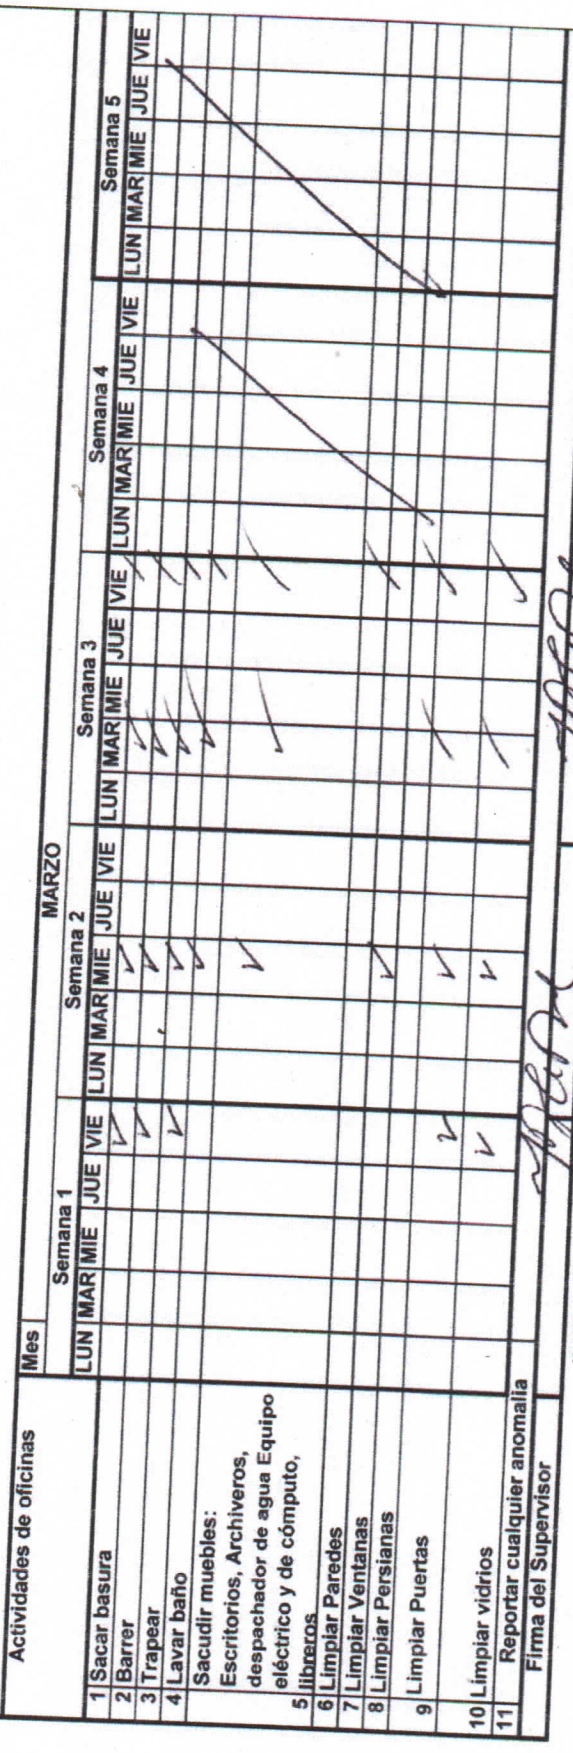 Actividades de oficinas
Mes
MARZO
Semana 1 Semana 2 Semana 3 Semana 4 Semana 5
LUN MAR MIE JUE VIE LUN MAR MIE JUE VIE LUN MAR MIE JUE VIE LUN MAR MIE JUE VIE LUN MAR MIE JUE VIE
1 Sacar basura
2 Barrer
3 Trapear
4 Lavar baño
Sacudir muebles:
Escritorios, Archiveros,
despachador de agua Equipo
eléctrico y de cómputo,
5 libreros
6 Limpiar Paredes
7 Limpiar Ventanas
8 Limpiar Persianas
9 Limpiar Puertas
10 Limpiar vidrios
11 Reportar cualquier anomalia
Firma del Supervisor